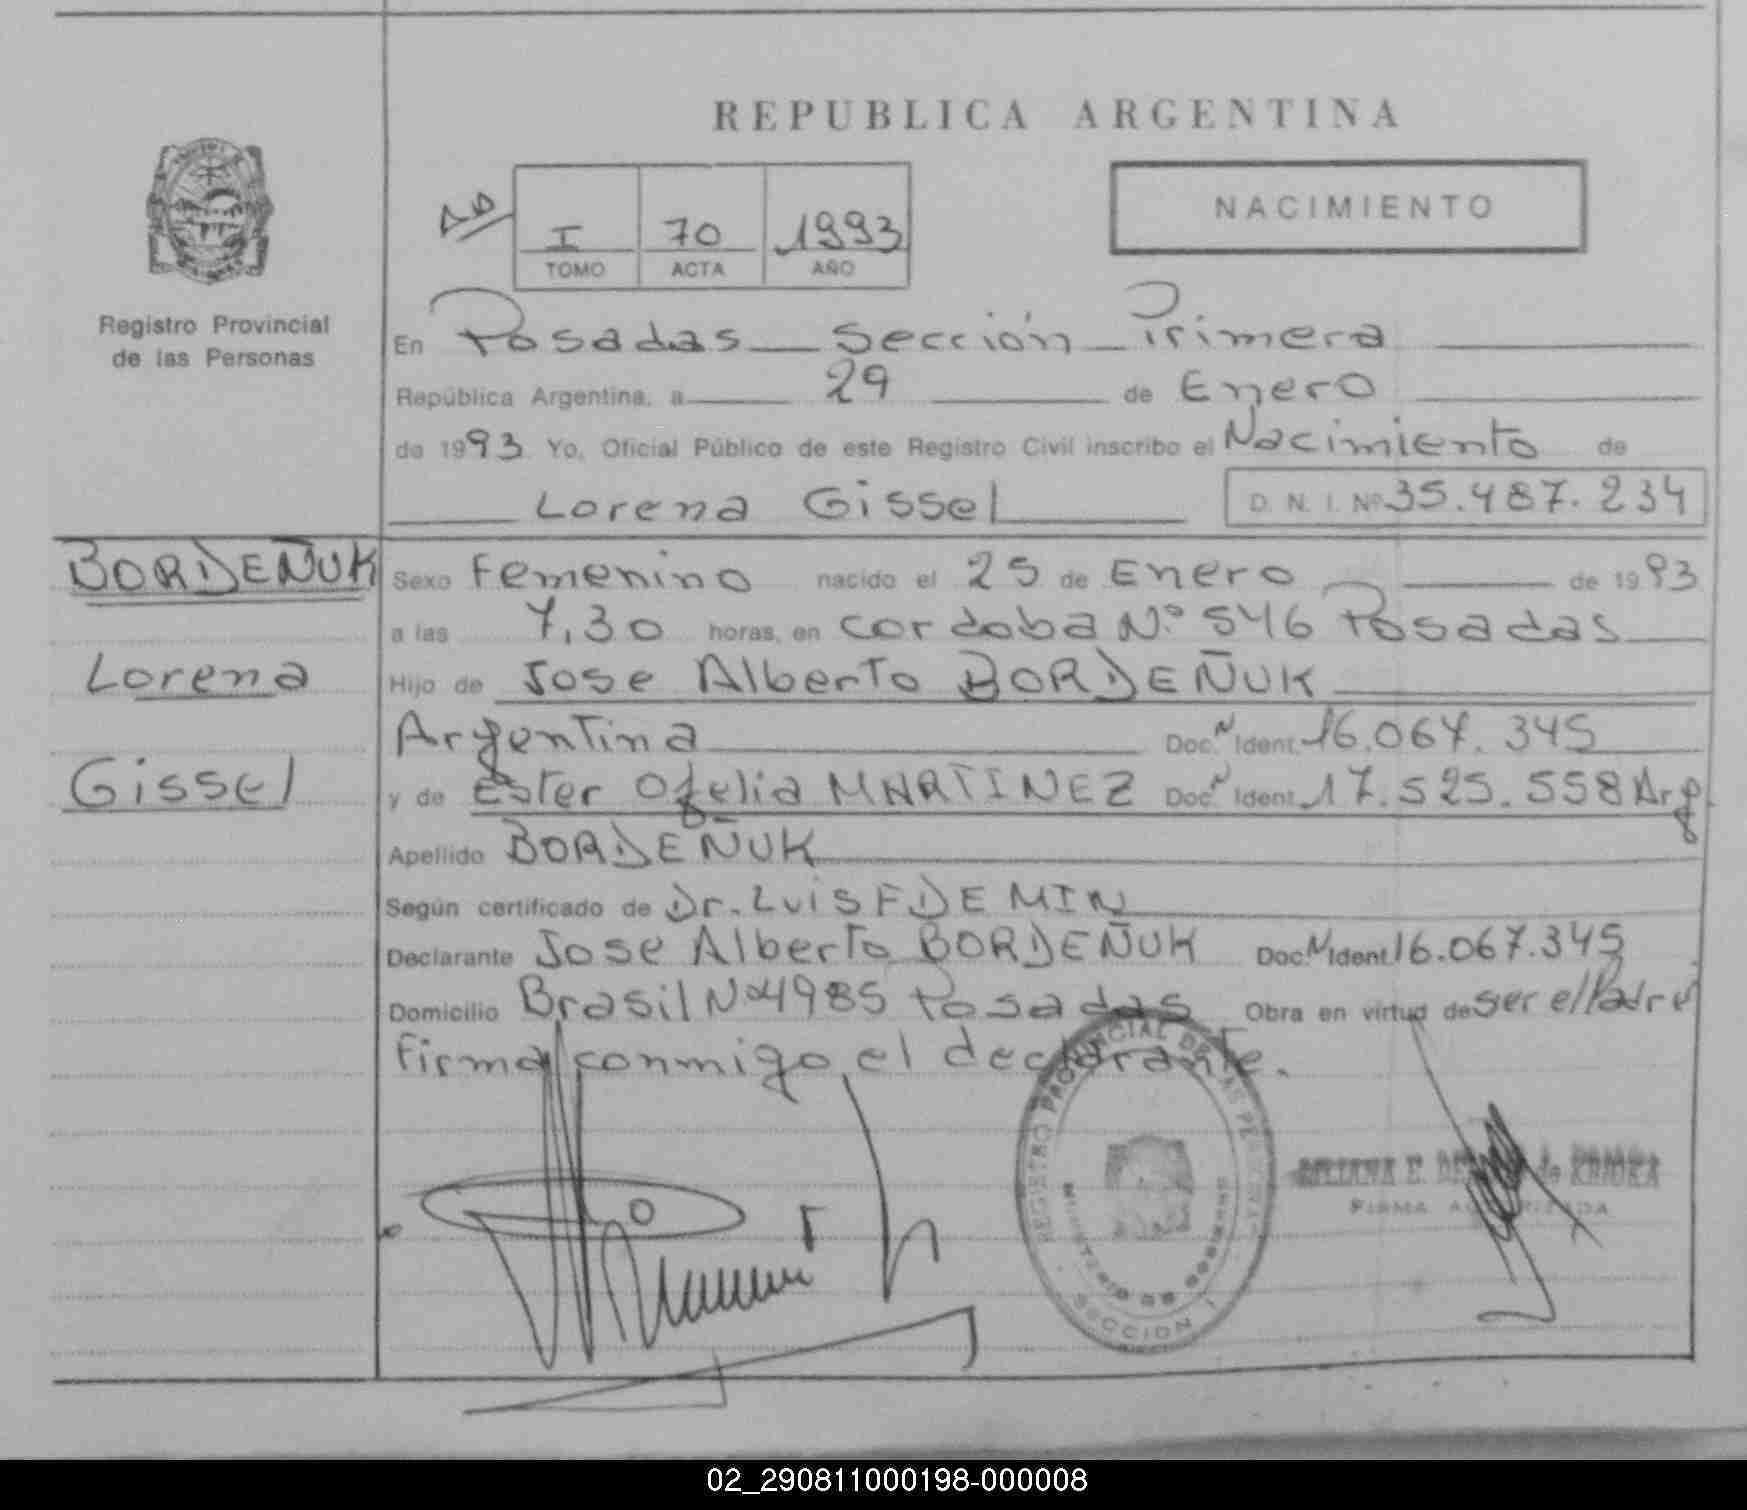 REPUBLICA ARGENTINA
NACIMIENTO
I 70 1993
TOMO ACTA AÑO
Registro Provincial
de las Personas
En Posadas Sección Primera
República Argentina, a 29 de Enero
de 1993 Yo, Oficial Público de este Registro Civil inscribo el Nacimiento de
Lorena Gissel D. N. I. Nº 35.487.234
BORDEÑUK
Lorena
Gissel
Sexo Femenino nacido el 25 de Enero de 1993
a las 7,30 horas, en cordoba Nº 546 Posadas
Hijo de Jose Alberto BORDEÑUK
Argentina Doc. N Ident. 16.067.345
y de Ester Ofelia MARTINEZ Doc. N Ident. 17.525.558 Arg
Apellido BORDEÑUK
Según certificado de Dr. Luis F DEMIN
Declarante Jose Alberto BORDEÑUK Doc. N Ident. 16.067.345
Domicilio Brasil Nº 4985 Posadas Obra en virtud de ser el Padre
Firma conmigo el declarante.
REGISTRO PROVINCIAL DE LAS PERSONAS
MINISTERIO DE GOBIERNO
SECCION 1
FIRMA AUTORIZADA
02_290811000198-000008